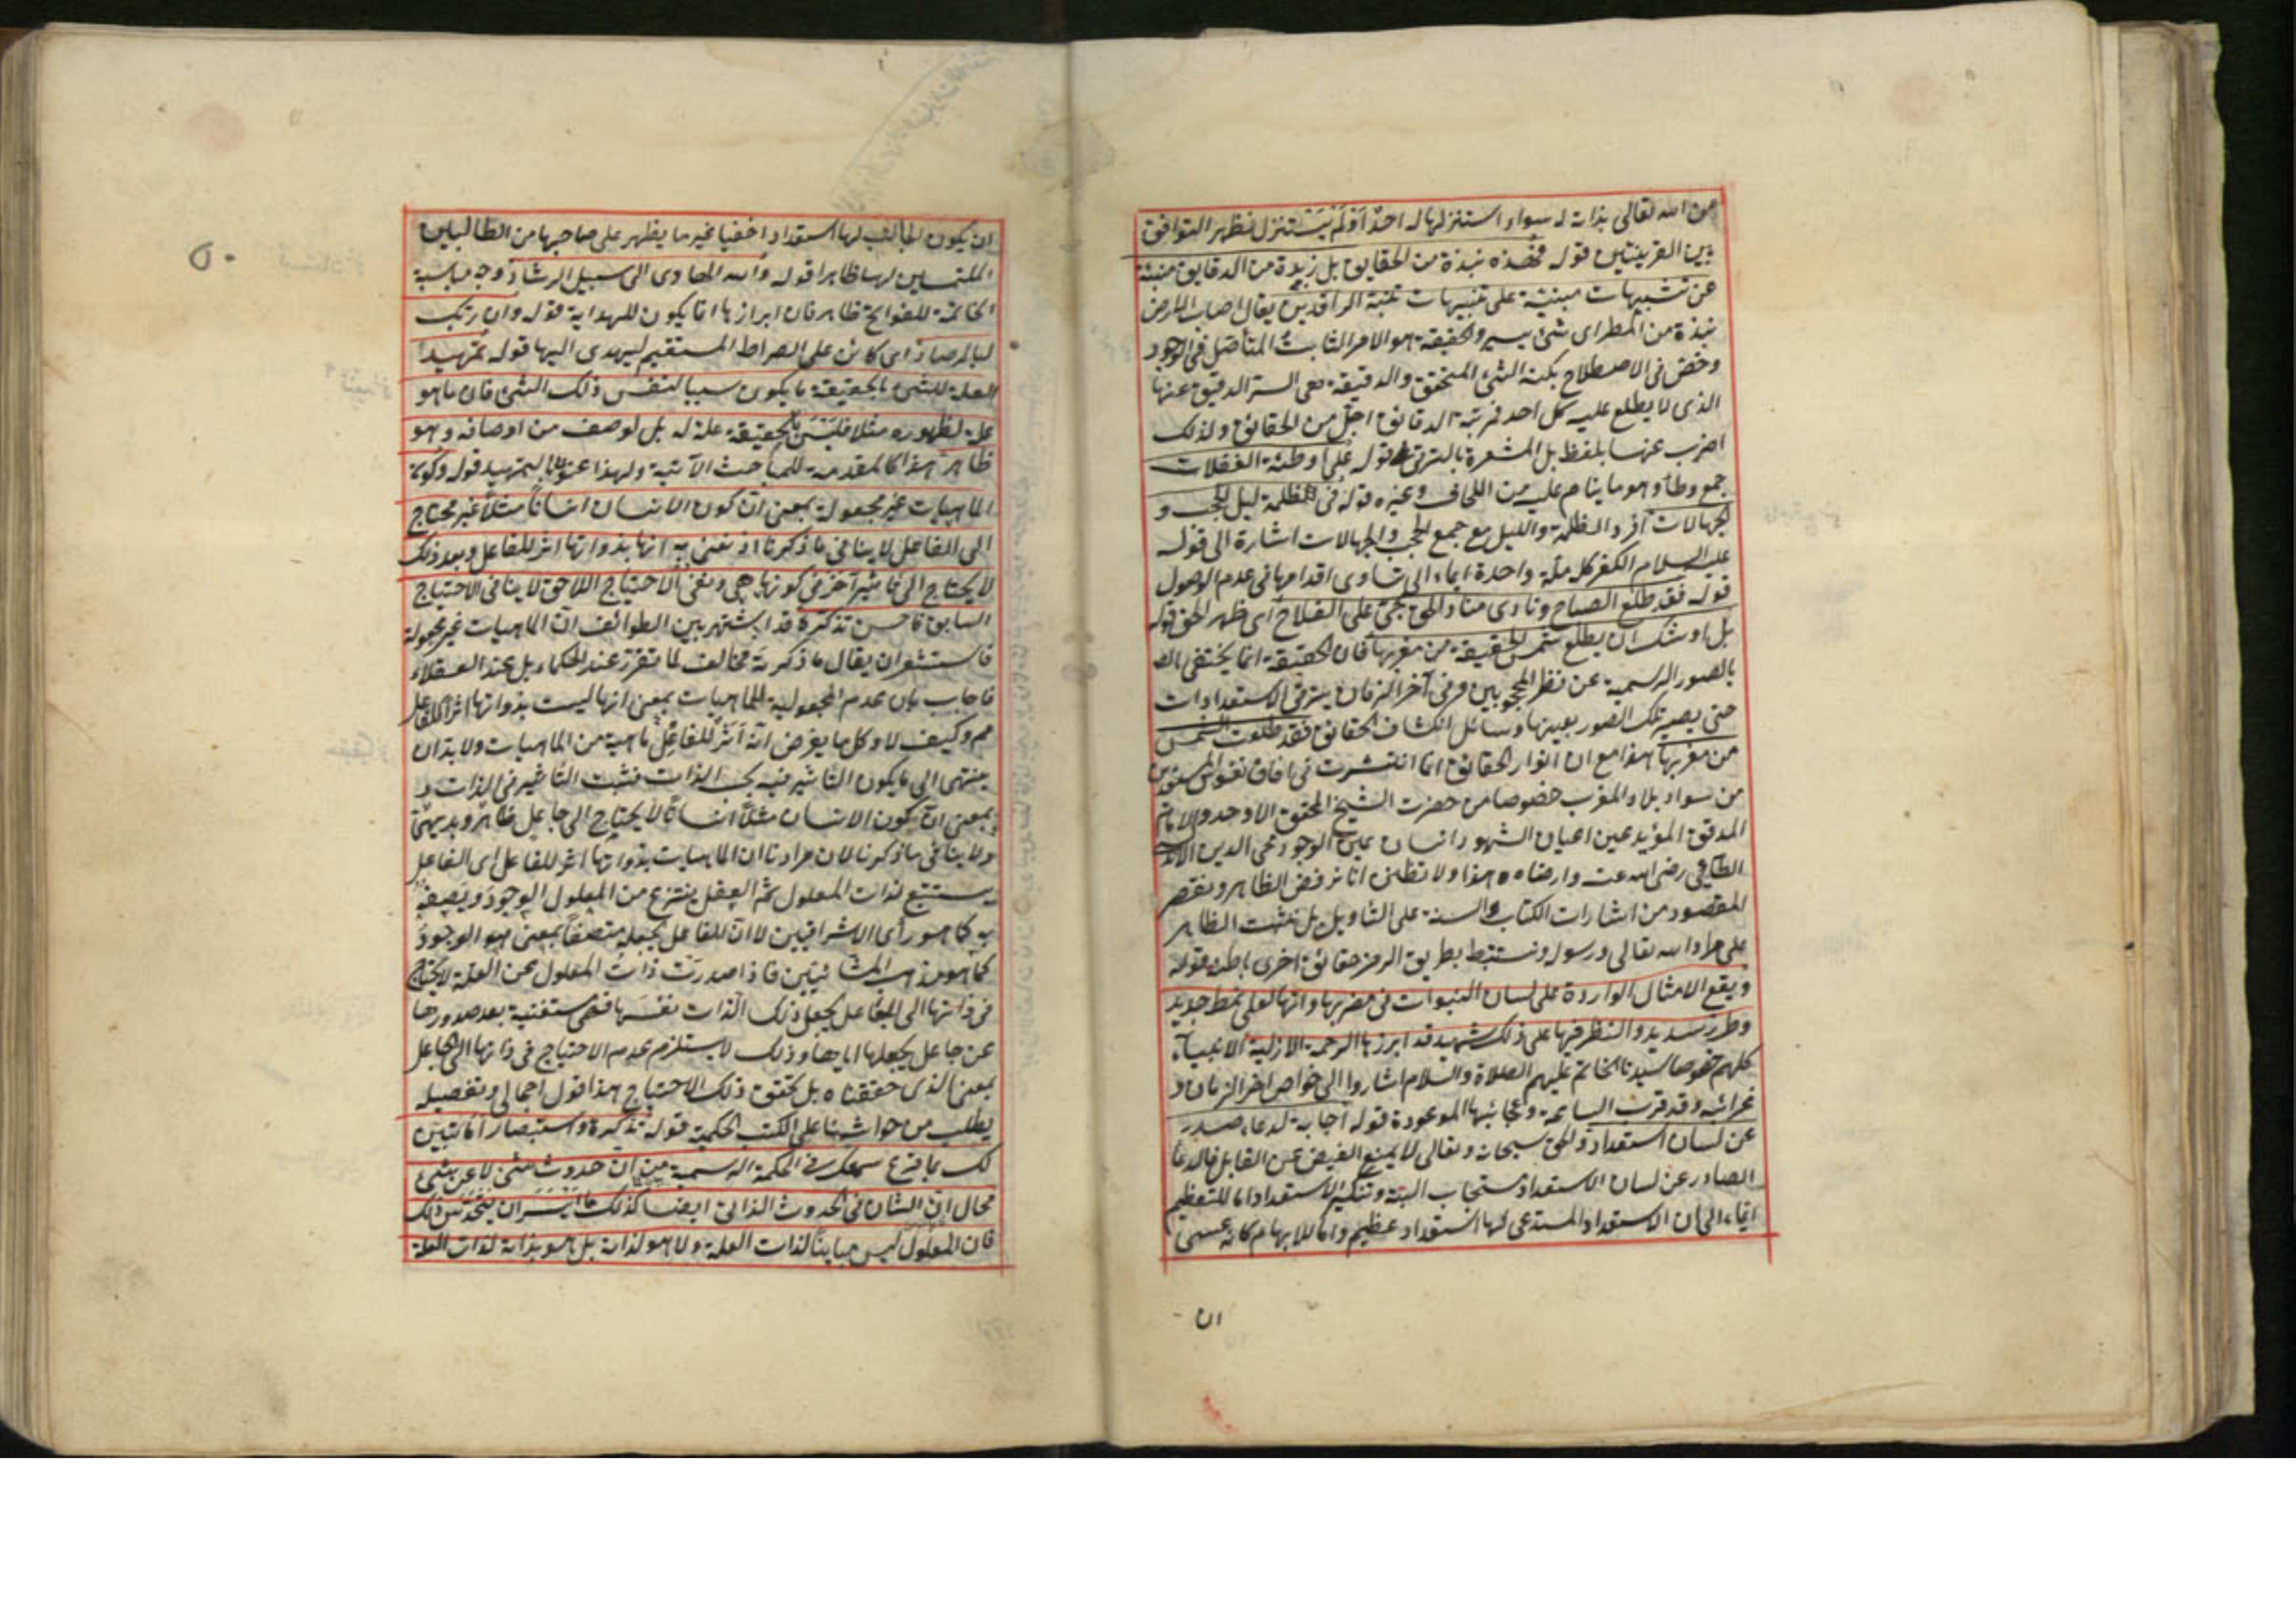 من الله تعالى بذاته له سواء استنزلها له احد او لم يستنزل فظهر التوافق
بين القرينتين قوله فهذه نبذة من الحقايق بل زبدة من الدقايق منبئة
عن تشبيهات مبنية على تنبيهات تنبه الراقدين يقال اصاب الارض
نبذة من المطر اى شئ يسير والحقيقة هو الامر الثابت المتأصل فى الوجود
وخص فى الاصطلاح بكنه الشئ المتحقق والدقيقة هى السر الدقيق عنها
الذى لا يطلع عليه كل احد فمرتبة الدقائق اجل من الحقائق ولذلك
اضرب عنها بلفظ بل المشعرة بالترقى قوله على اوطئة الغفلات
جمع وطاء وهو ما ينام عليه من اللحاف وغيره قوله فى ظلمة ليل الحجب و
الجهالات افرد الظلمة والليل مع جمع الحجب والجهالات اشارة الى قوله
عليه السلام الكفر كله ملة واحدة ايماء الى تساوى اقدامها فى عدم الوصول
قوله فقد طلع الصباح ونادى مناد الحق بحى على الفلاح اى ظهر الحق قوله
بل اوشك ان يطلع شمس الحقيقة من مغربها فان الحقيقة انما يختفى
بالصور الرسمية عن نظر المحجوبين وفى آخر الزمان يترقى الاستعدادات
حتى يصير تلك الصور بعينها وسائل انكشاف الحقائق فقد طلعت الشمس
من مغربها هذا مع ان انوار الحقائق انما انتشرت فى افاق نفوس المستعدين
من سواد بلاد المغرب خصوصا من حضرت الشيخ المحقق الاوحد والامام
المدقق المؤيد عين اعيان الشهود انسان عين الوجود محى الدين
الطائى رضى الله عنه وارضاه هذا ولا تظنن انا نرفض الظاهر ونقتصر
المقصود من اشارات الكتاب والسنة على التأويل بل نثبت الظاهر
على مراد الله تعالى ورسوله ونستنبط بطريق الرمز حقائق اخرى باطنة قوله
ويقع الامثال الواردة على لسان النبوات فى مضربها وانها لعلى نمط جديد
وطرز سديد والنظر فيها على ذلك شهيد قد ابرزها الرحمة الازلية الانبياء
كلهم خصوصا سيدنا الخاتم عليهم الصلاة والسلام اشاروا الى خواص اخر الزمان و
غرائبه وقد قرب الساعة وعجائبها الموعودة قوله اجابة لدعاء صدر
عن لسان استعداد والحق سبحانه وتعالى لا يمنع الفيض عن القابل فالدعا
الصادر عن لسان الاستعداد مستجاب البتة وتنكير الاستعداد اما للتعظيم
ايماء الى ان الاستعداد المستدعى لها استعداد عظيم واما للابهام كانه عسى
ان
٥٠
ان يكون الطالب لها استعدادا خفيا غير ما يظهر على صاحبها من الطالبين
الملتمسين لها ظاهرا قوله والله الهادى الى سبيل الرشاد وجه مناسبة
الخاتمة للفواتح ظاهر فان ابرازها انما يكون للهداية قوله وان ربك
لبالمرصاد اى كائن على الصراط المستقيم ليهدى اليها قوله تمهيد
العلة للشئ بالحقيقة ما يكون سببا لنفس ذلك الشئ فان ما هو
علة لظهوره مثلا فليس بالحقيقة علة له بل لوصف من اوصافه وهو
ظاهر هذا كالمقدمة للمباحث الآتية ولهذا عنونها بالتمهيد قوله وكون
الماهيات غير مجعولة بمعنى ان كون الانسان انسانا مثلا غير محتاج
الى الفاعل لا ينافى ما ذكرنا اذ نعنى به انها بذواتها اثر للفاعل وبعد ذلك
لا يحتاج الى تاثير آخر فى كونها هى ونفى الاحتياج اللاحق لا ينافى الاحتياج
السابق فاحسن تذكره قد اشتهر بين الطوائف ان الماهيات غير مجعولة
فاستشعر ان يقال ما ذكرته مخالف لما تقرر عند الحكماء بل عند العقلاء
فاجاب بان عدم المجعولية للماهيات بمعنى انها ليست بذواتها اثر للفاعل
مم وكيف لا وكل ما يفرض انه اثر للفاعل ماهية من الماهيات ولا بد ان
ينتهى الى ما يكون التأثير فيه بحسب الذات فثبت التأثير فى الذات و
بمعنى ان كون الانسان مثلا انسانا لا يحتاج الى جاعل ظاهر وبديهى
ولا ينافى ما ذكرنا لان مرادنا ان الماهيات بذواتها اثر للفاعل اى الفاعل
يستتبع لذات المعلول ثم العقل ينتزع من المعلول الوجود ويصفه
به كما هو رأى الاشراقيين لا ان للفاعل يجعله متصفا بمعنى هو الوجود
كما هو مذهب المشائيين فاذا صدرت ذات المعلول عن العلة لا يحتاج
فى ذاتها الى الفاعل يجعل ذلك الذات نفسها فهى مستغنية بعد صدورها
عن جاعل يجعلها اياها وذلك لا يستلزم عدم الاحتياج فى ذاتها الى الجاعل
بمعنى الذى حققناه بل تحقق ذلك الاحتياج هذا قول اجمالى وتفصيله
يطلب من حواشينا على الكتب الحكمية قوله تذكرة واستبصار اما تبين
لك بما قرع سمعك فى الحكمة الرسمية من ان حدوث شئ لا عن شئ
محال ان الشان فى الحدوث الذاتى ايضا كذلك ما ايسر ان يتحدس ذلك
فان المعلول ليس مباينا لذات العلة ولا هو لذاته بل هو بذاته لذات العلة